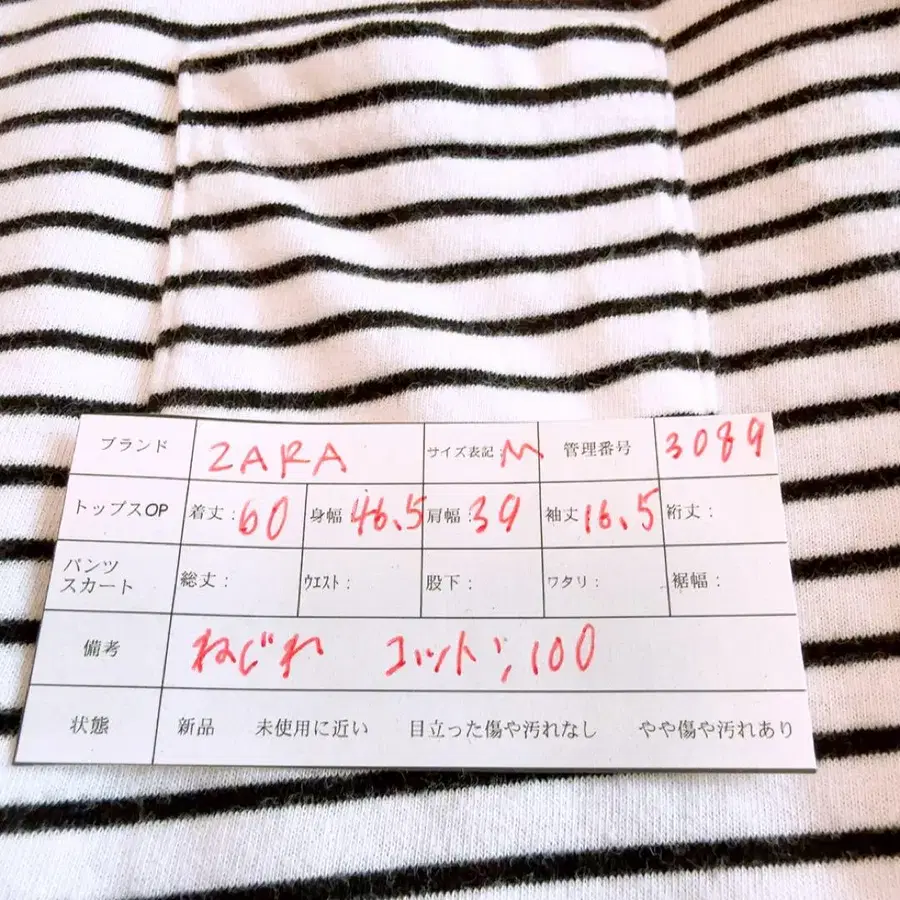 ブランド ZARA サイズ表記:M 管理番号 3089
トップスOP 着丈:60 身幅 46.5 肩幅:39 袖丈 16.5 裄丈:
パンツ スカート 総丈: ウエスト: 股下: ワタリ: 裾幅:
備考 ねじれ コットン100
状態 新品 未使用に近い 目立った傷や汚れなし やや傷や汚れあり